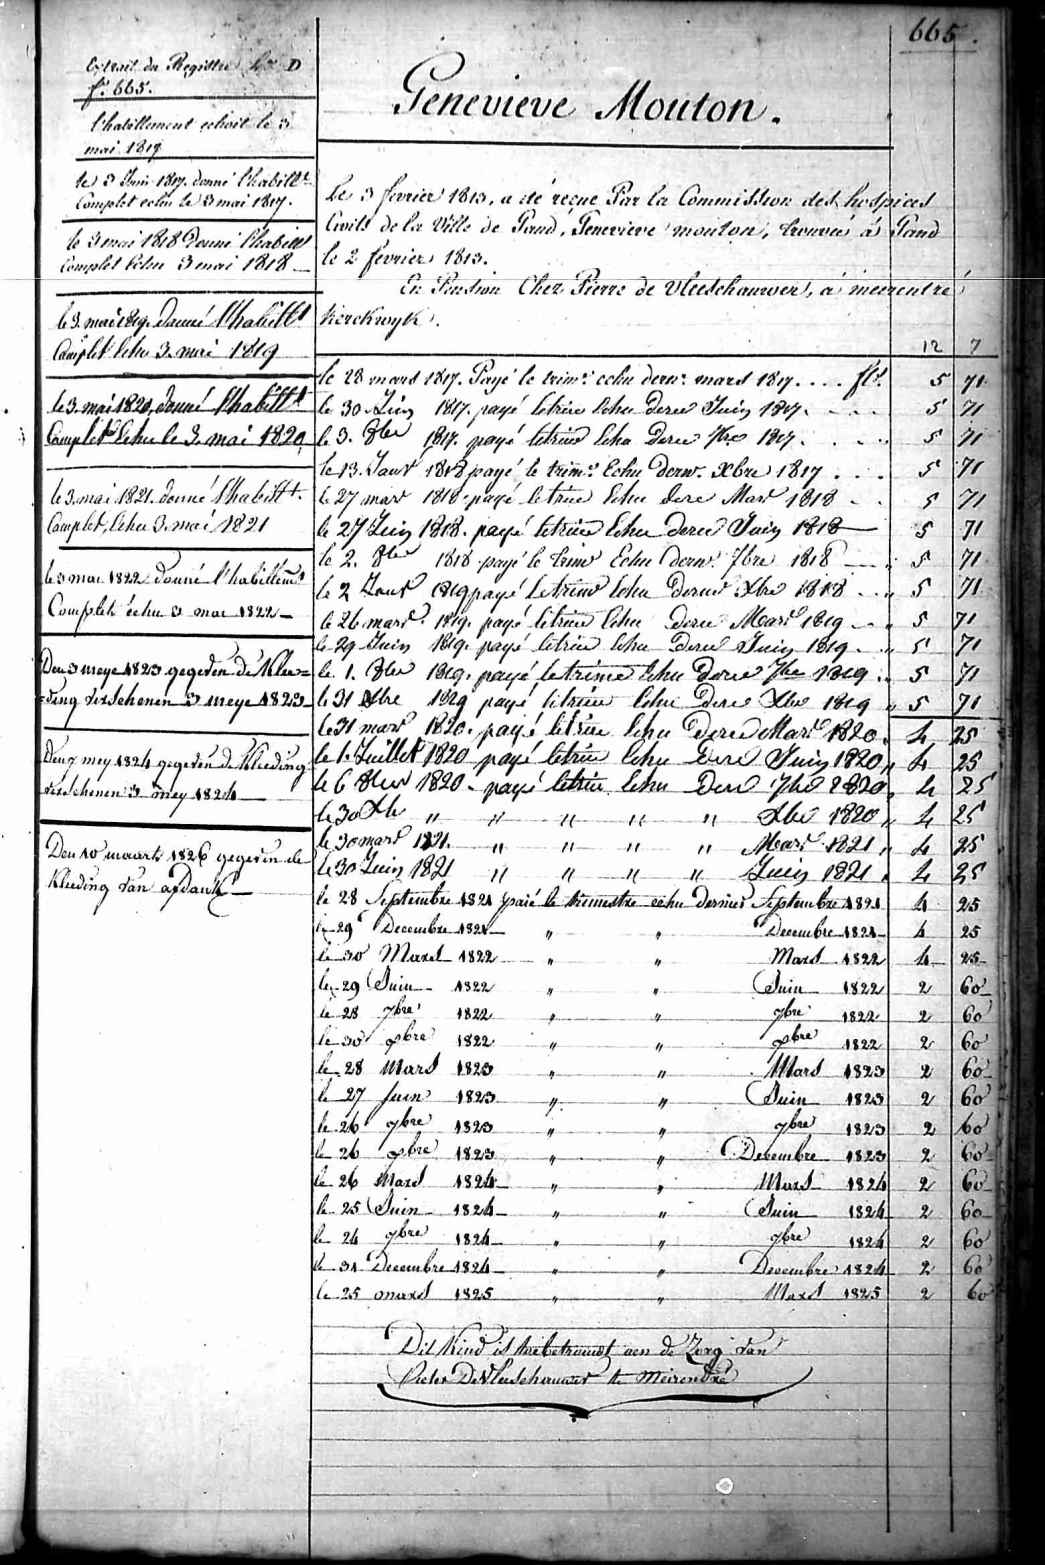 665.
Extrait du Registre Lre D
fo. 665.
l'habillement echoit le 3
mai 1817
le 3 Juin 1817. donné l'habillt
Complet echu le 3 mai 1817.
le 3 mai 1818 Donné l'habillt
Complet Echu 3 mai 1818
le 3 mai 1819. donné l'habillt
Complet Echu 3. mai 1819
le 3. mai 1820, donné l'habillt
Complet Echu le 3. mai 1820
le 3. mai 1821. donné l'habillt.
Complet, Echu 3. mai 1821
le 3 mai 1822 donné l'habillemt
Complet échu 3 mai 1822
Den 3 meye 1823 gegeven de klee=
=ding verschenen 3 meye 1823
Den 7 mey 1824 gegeven de kleeding
verschenen 3 mey 1824
Den 10 maart 1826 gegeven de
kleeding van afdank
Genevieve Mouton.
Le 3 fevrier 1813, a été reçue Par la Commission des hospices
Civils de la Ville de Gand, Genevieve mouton, trouvée à Gand
le 2 fevrier 1813.
En Pension Chez Pierre de Vleeschauwer, à meerentré
kerckwyk.
12 7
le 28 mars 1817. Payé le trimre echu dernr. mars 1817 .... fls. 5 71
le 30 Juin 1817. payé letrim Echu Dernr Juin 1817. 5 71
le 3. 8bre 1817. payé letrim Echu Dernr 7bre 1817. 5 71
le 13. Janr 1818 payé le trimre Echu dernr. Xbre 1817 5 71
le 27 mars 1818. payé letrim Echu dernr Mars 1818 5 71
le 27 Juin 1818. payé letrim Echu dernr Juin 1818 5 71
le 2. 8bre 1818 payé le trim Echu dernr. 7bre 1818 5 71
le 2 Janr 1819 payé Letrim Echu Dernr Xbre 1818 5 71
le 26 mars. 1819. payé letrim Echu Dernr Mars 1819 5 71
le 29 Juin 1819. payé letrim Echu Dernr Juin 1819. 5 71
le 1. 8bre 1819. payé letrim Echu Dernr 7bre 1819 5 71
le 31 Xbre 1819 payé letrim Echu Dernr Xbre 1819 5 71
le 31 mars 1820. payé letrim Echu Dernr Mars 1820 4 25
le 1. Juillet 1820 payé letrim Echu Dernr Juin 1820 4 25
le 6 8bre 1820. payé letrim Echu Dernr 7bre 1820 4 25
le 30 Xbre " " " " " Xbre 1820 4 25
le 30 mars 1821. " " " " Mars 1821 4 25
le 30 Juin 1821 " " " " Juin 1821 4 25
le 28 Septembre 1821 payé le trimestre echu dernier Septembre 1821 4 25
le 29 Decembre 1821 " " Decembre 1821 4 25
le 30 Mars 1822 " " Mars 1822 4 25
le 29 Juin 1822 " " Juin 1822 2 60
le 28 7bre 1822 " " 7bre 1822 2 60
le 30 xbre 1822 " " xbre 1822 2 60
le 28 Mars 1823 " " Mars 1823 2 60
le 27 Juin 1823 " " Juin 1823 2 60
le 26 7bre 1823 " " 7bre 1823 2 60
le 26 xbre 1823 " " Decembre 1823 2 60
le 26 Mars 1824 " " Mars 1824 2 60
le 25 Juin 1824 " " Juin 1824 2 60
le 24 7bre 1824 " " 7bre 1824 2 60
le 31 Decembre 1824 " " Decembre 1824 2 60
le 25 mars 1825 " " Mars 1825 2 60
Dit Kind is toebetrouwt aen de Zorg van
Pieter De Vleeschauwer te Meirendre